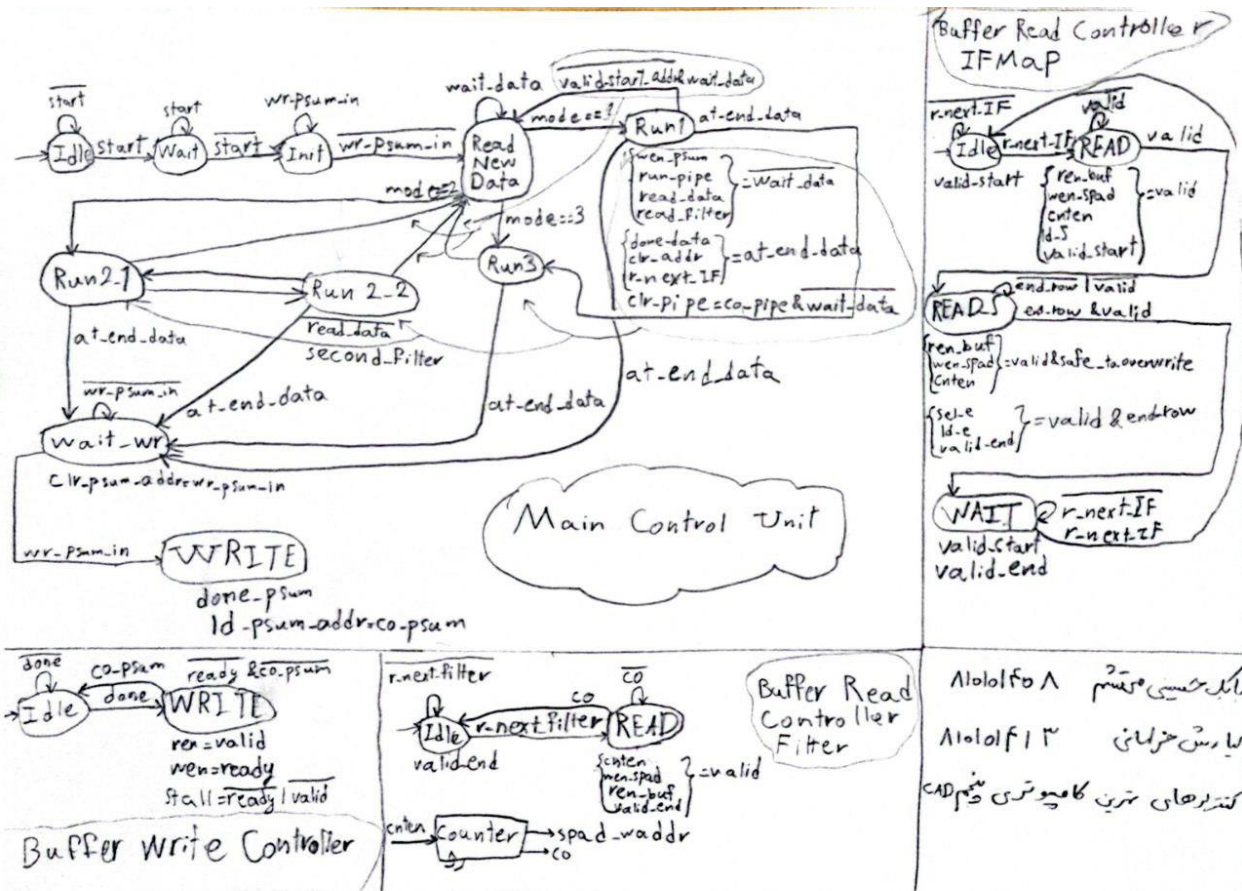 start̅
Idle
start
start
Wait
s̅t̅a̅r̅t̅
wr-psum_in
Init
w̅r̅-̅p̅s̅u̅m̅_̅i̅n̅
wait_data
v̅a̅l̅i̅d̅_̅s̅t̅a̅r̅t̅_addr&wait_data
Read
New
Data
mode==1
Run1
at-end_data
mode==2
mode==3
{wen_psum
run-pipe
read_data
read_filter} = w̅a̅i̅t̅_̅d̅a̅t̅a̅
{done-data
clr_addr
r-next_IF} = at_end_data
clr-pipe=co_pipe & w̅a̅i̅t̅_̅d̅a̅t̅a̅
Run2_1
Run 2_2
Run3
r̅e̅a̅d̅_̅d̅a̅t̅a̅
second_filter
at_end_data
at_end_data
at_end_data
at_end_data
w̅r̅_̅p̅s̅u̅m̅_̅i̅n̅
wait_wr
clr_psum_addr=wr_psum_in
wr_psum_in
WRITE
done_psum
ld-psum_addr=co_psum
Main Control Unit
Buffer Read Controller
IFMap
r̅_̅n̅e̅x̅t̅_̅I̅F̅
Idle
r_next_IF
v̅a̅l̅i̅d̅
READ
valid
valid-start
{ren_buf
wen_spad
cnten
ld_s
valid_start} = valid
READ_S
e̅n̅d̅_̅r̅o̅w̅ | v̅a̅l̅i̅d̅
end-row & valid
{ren_buf
wen_spad
cnten} = valid&safe_to_overwrite
{sel_e
ld_e
valid_end} = valid & end_row
WAIT
r̅_̅n̅e̅x̅t̅_̅I̅F̅
r_next_IF
valid_start
valid_end
d̅o̅n̅e̅
Idle
co_psum
done
r̅e̅a̅d̅y̅ & c̅o̅_̅p̅s̅u̅m̅
WRITE
ren=valid
wen=ready
stall=r̅e̅a̅d̅y̅ | v̅a̅l̅i̅d̅
Buffer Write Controller
r̅_̅n̅e̅x̅t̅_̅f̅i̅l̅t̅e̅r̅
Idle
valid_end
co
r_next_filter
c̅o̅
READ
{cnten
wen_spad
ren_buf
valid_end} = valid
cnten
Counter
spad_waddr
co
Buffer Read
Controller
Filter
بابک حسینی محتشم ۸۱۰۱۰۱۴۰۸
۸۱۰۱۰۱۴۱۳
کنترلرهای تمرین کامپیوتری پنجم CAD